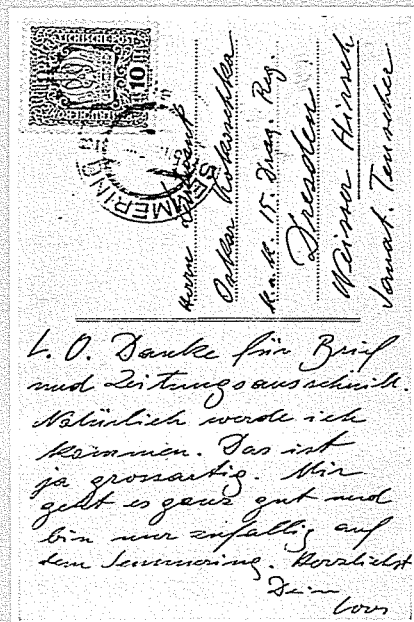 10
SEMMERING
Herrn Leutnant
Oskar Kokoschka
k. u. k. 15. Drag. Reg.
Dresden
Weisser Hirsch
Sanat. Teuscher
L. O. Danke für Brief
und Zeitungsausschnitt.
Natürlich werde ich
kommen. Das ist
ja grossartig. Mir
geht es ganz gut und
bin nur zufällig auf
dem Semmering. Herzlichst
Dein
Loos